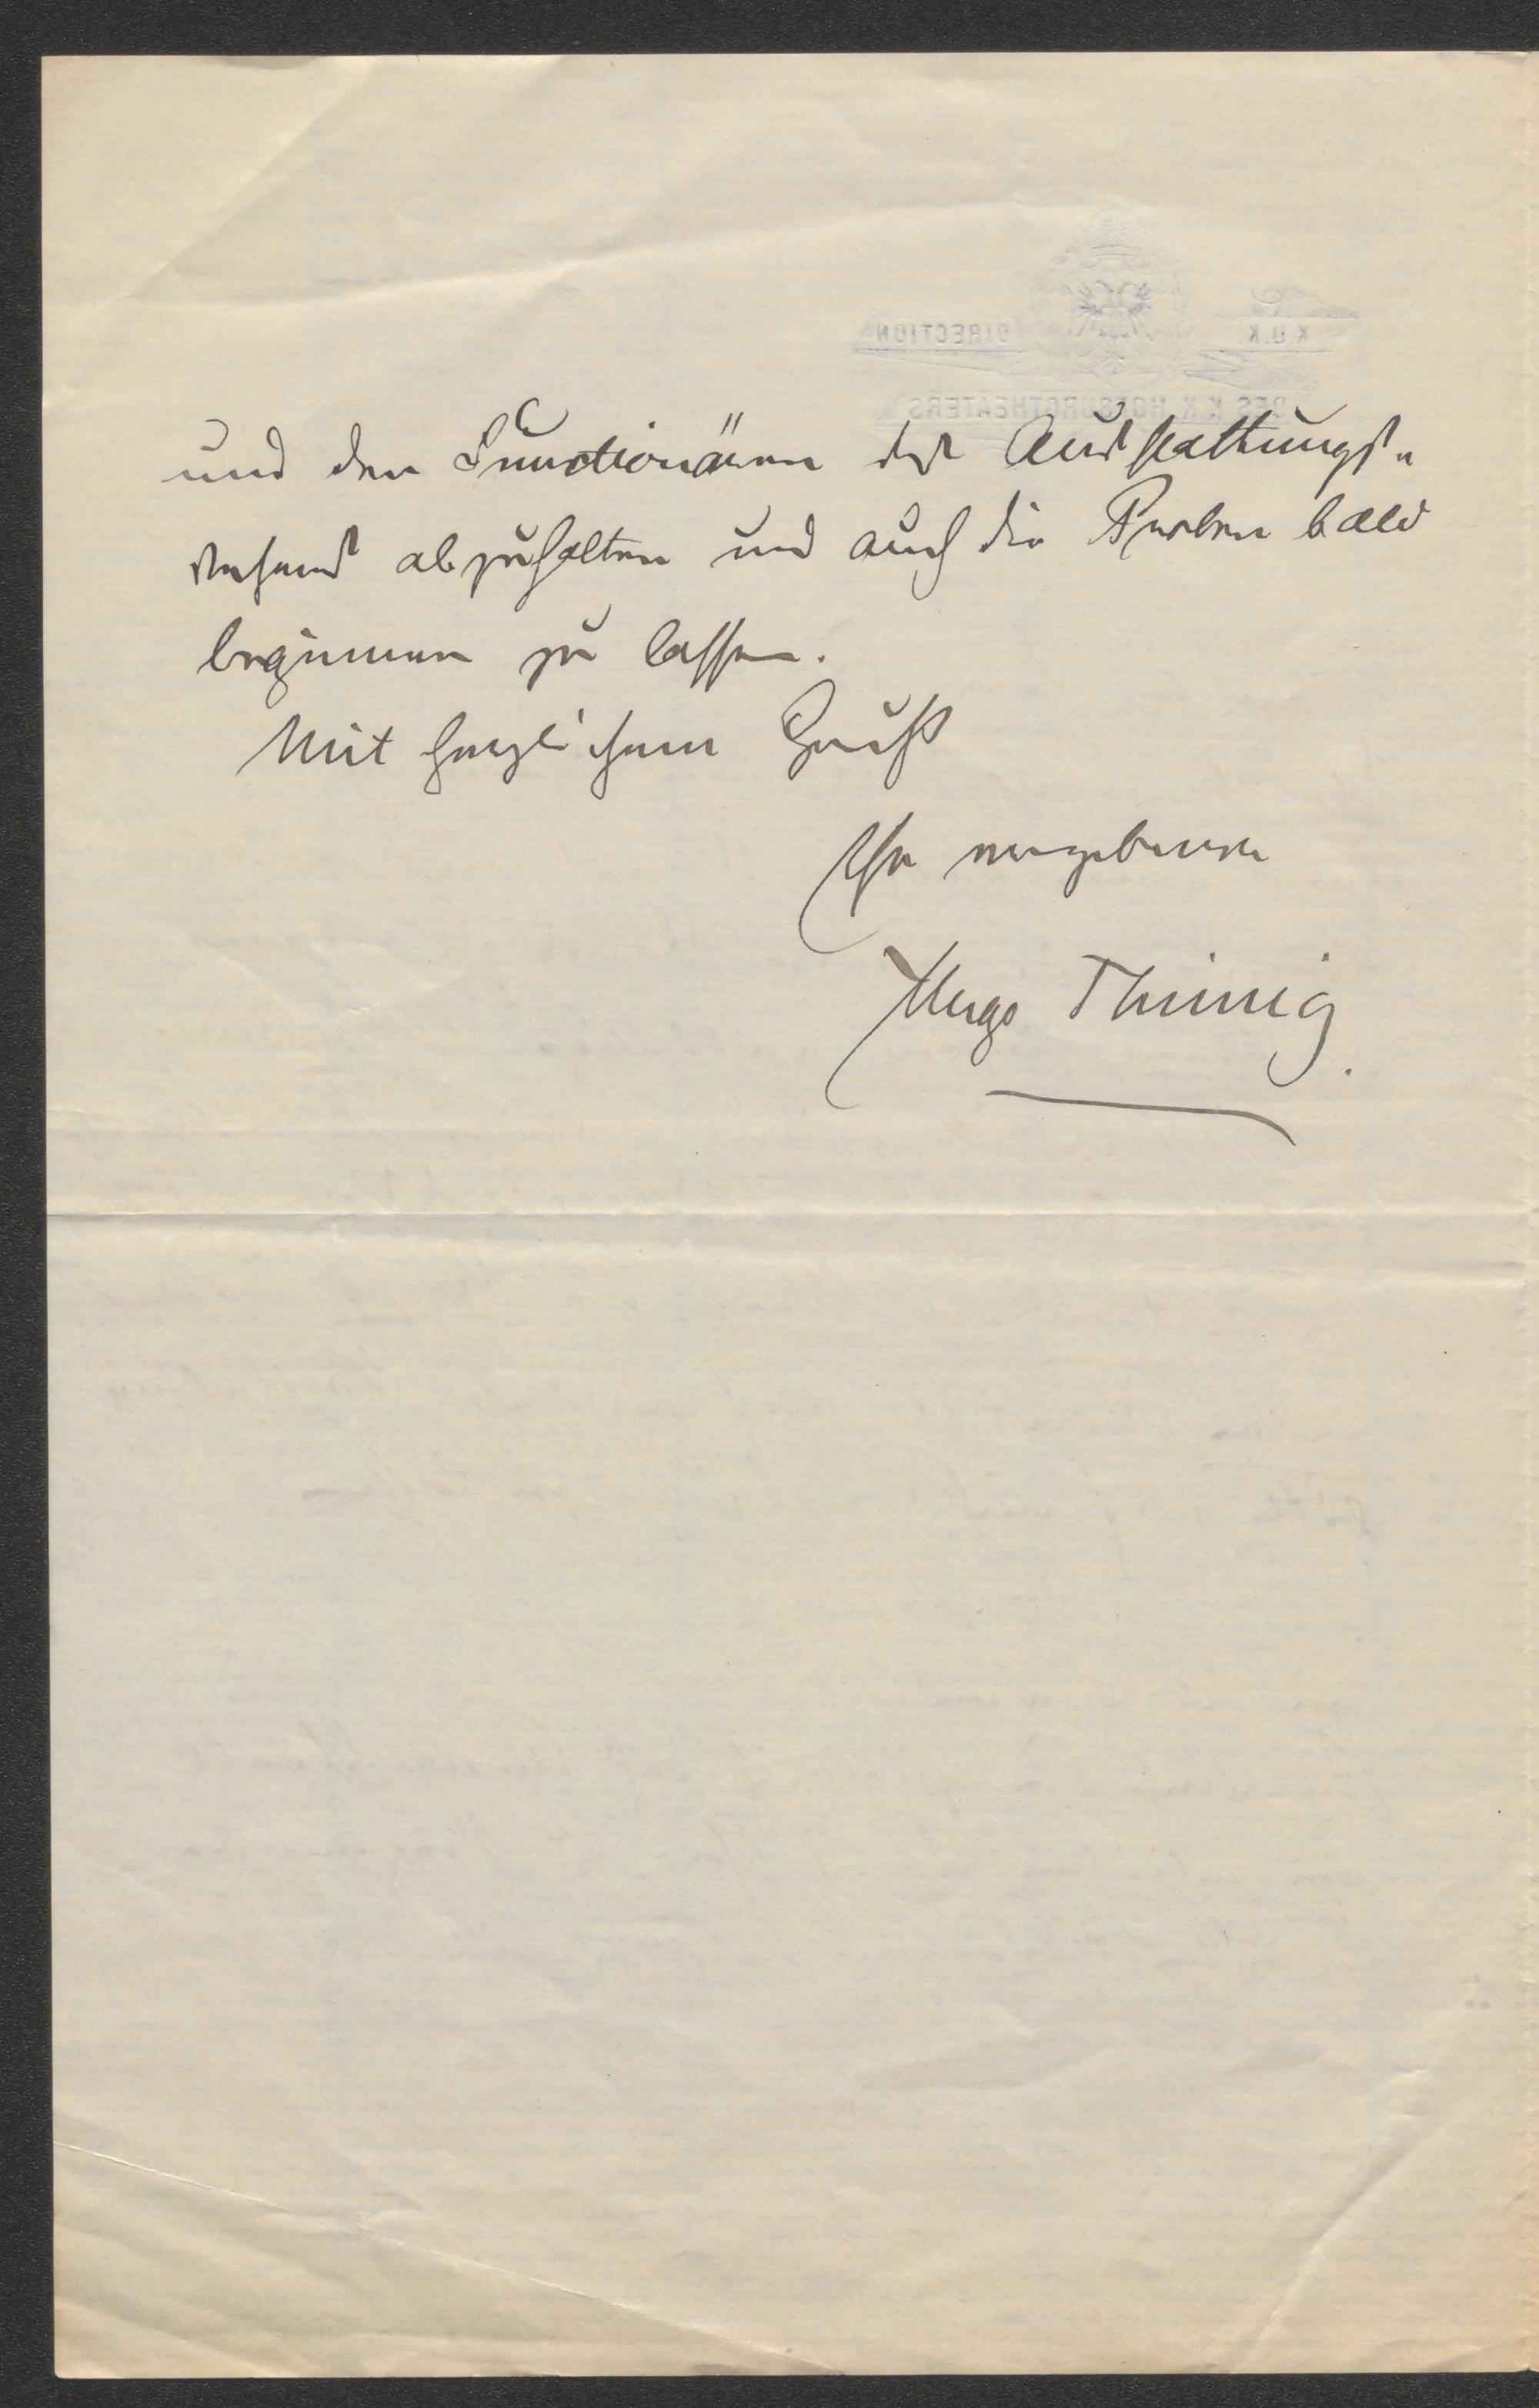 K.U.K. DIRECTION
DES K.K. HOFBURGTHEATERS
und den Functionären des Ausstattungs-
wesens abzuhalten und auch die Proben bald
beginnen zu lassen.
Mit herzlichem Gruß
Ihr ergebener
Hugo Thimig.